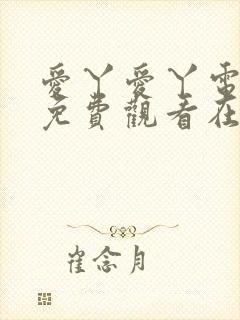 愛丫愛丫電
免費觀看在
崔念月